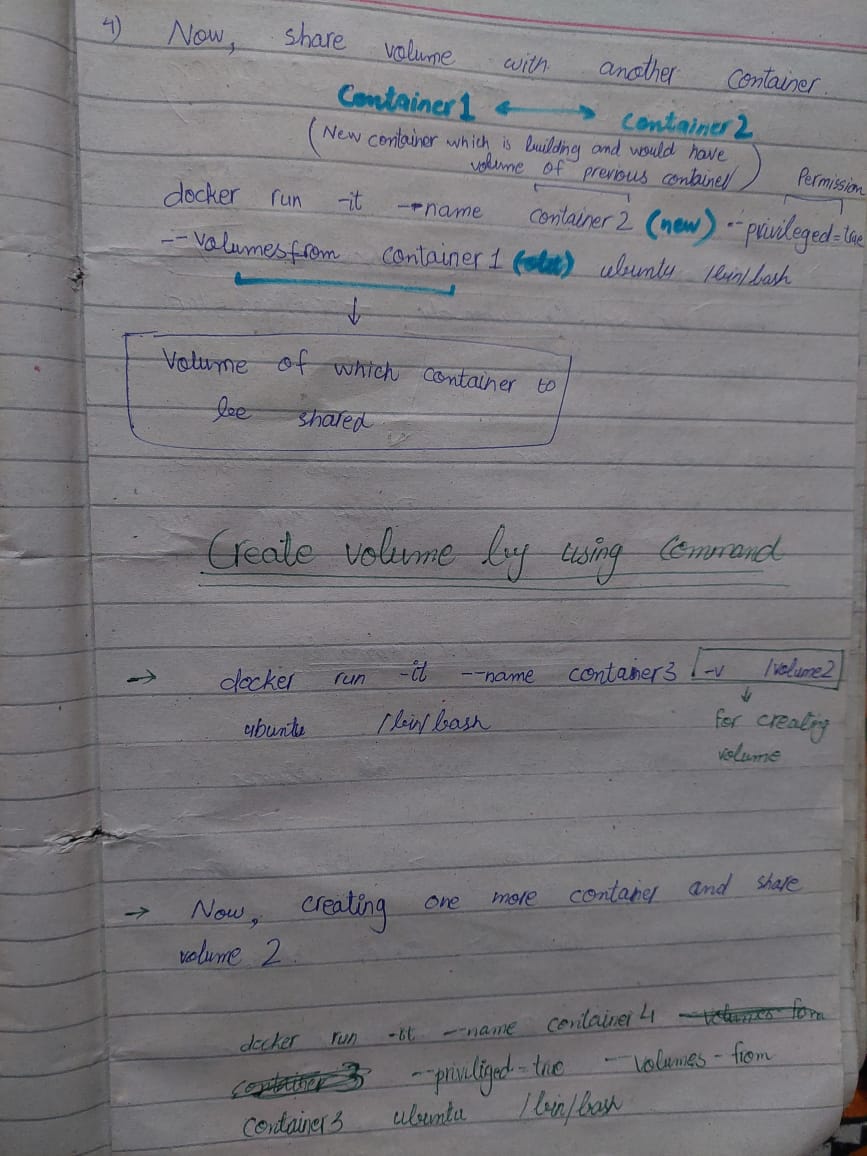 4) Now, share volume with another container.
Container1 ⟷ Container2
(New container which is building and would have
volume of previous container)
Permission
docker run -it --name container2 (new) --privileged=true
--volumesfrom container1 (old) ubuntu /bin/bash
↓
Volume of which container to
be shared
Create volume by using Command
→ docker run -it --name container3 -v /volume2
ubuntu /bin/bash
↓
for creating
volume
→ Now, creating one more container and share
volume 2.
docker run -it --name container4 volumes-form
container3 --priviliged=true --volumes-from
container3 ubuntu /bin/bash